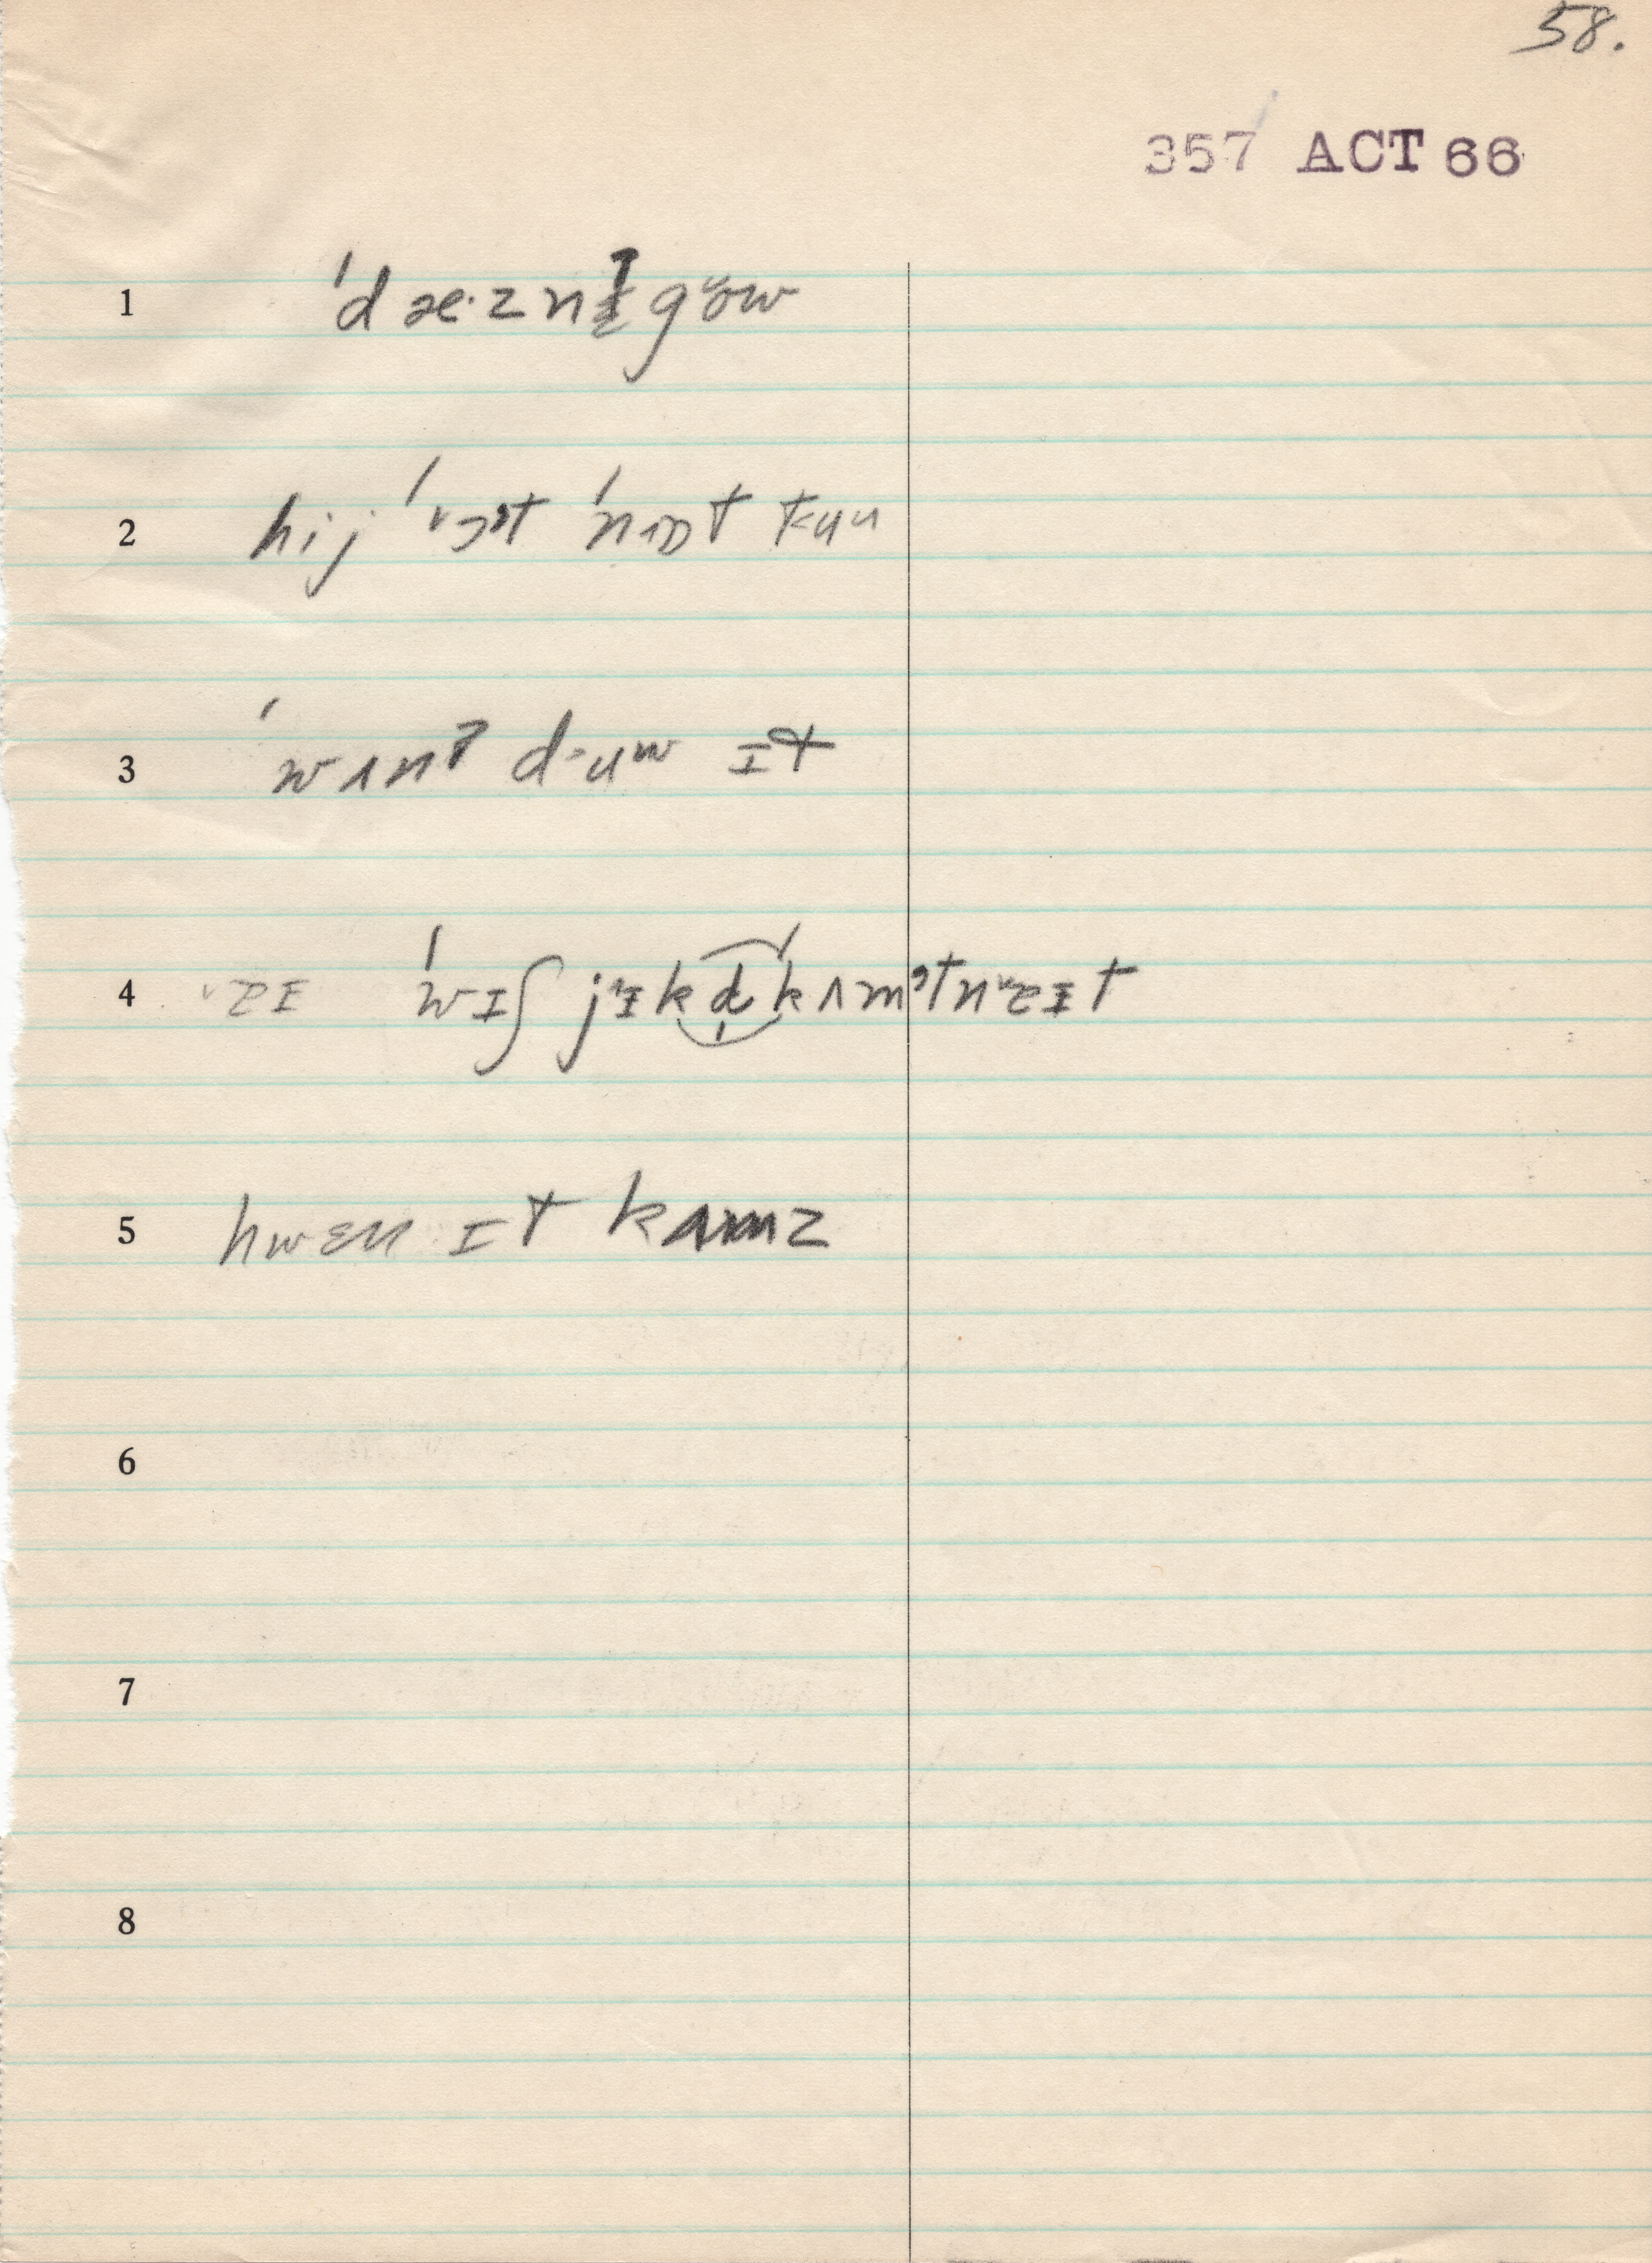 58.
357 ACT 66
1 ˈdæ·znɪ gow
2 hij ˈɔt ˈnɒt tu
3 ˈwʌnʔ duw ɪt
4 ɪ ˈwɪʃ jɪ kd kʌmətnɪt
5 hwɛn ɪt kʌmz
6
7
8